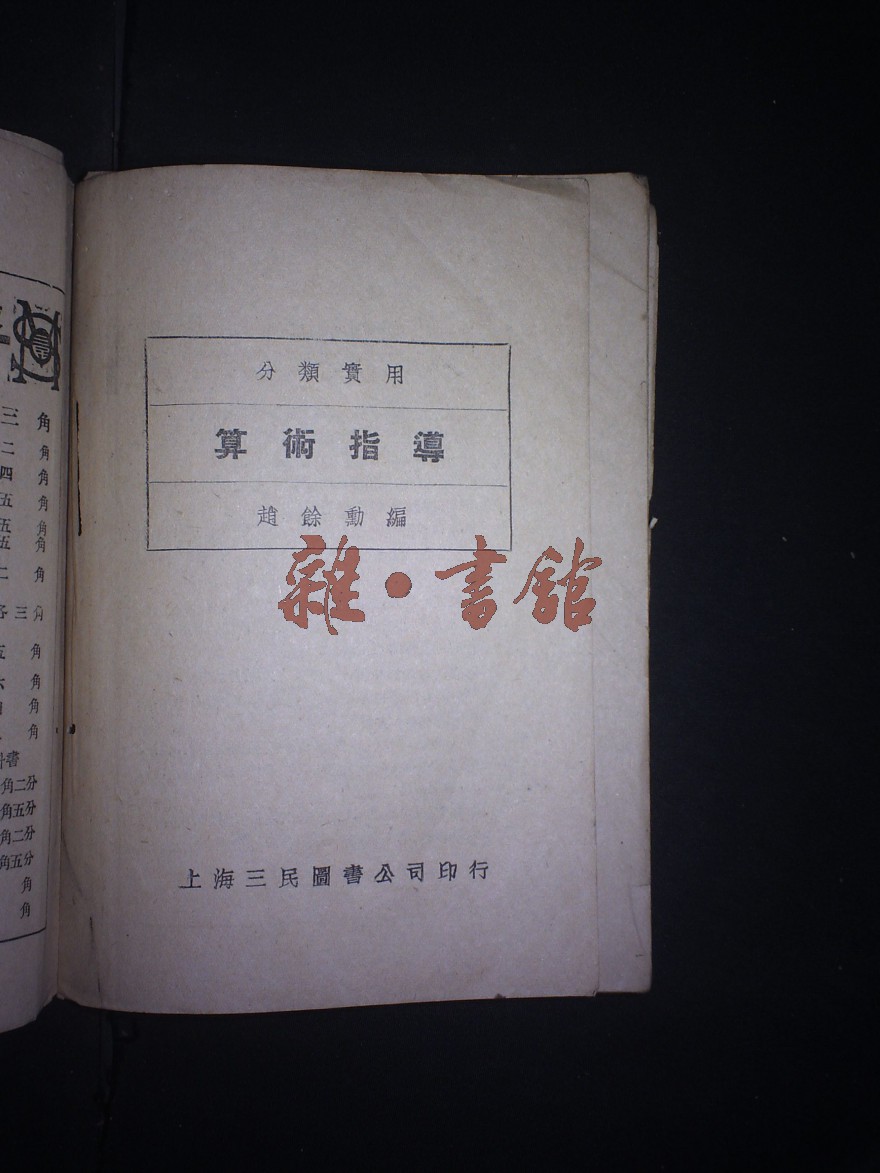 分類實用
算術指導
趙餘勳編
雜·書館
上海三民圖書公司印行
三角
二角
四角
五角
五角
五角
二角
各三角
五角
六角
角
角
書
角二分
角五分
角二分
角五分
角
角